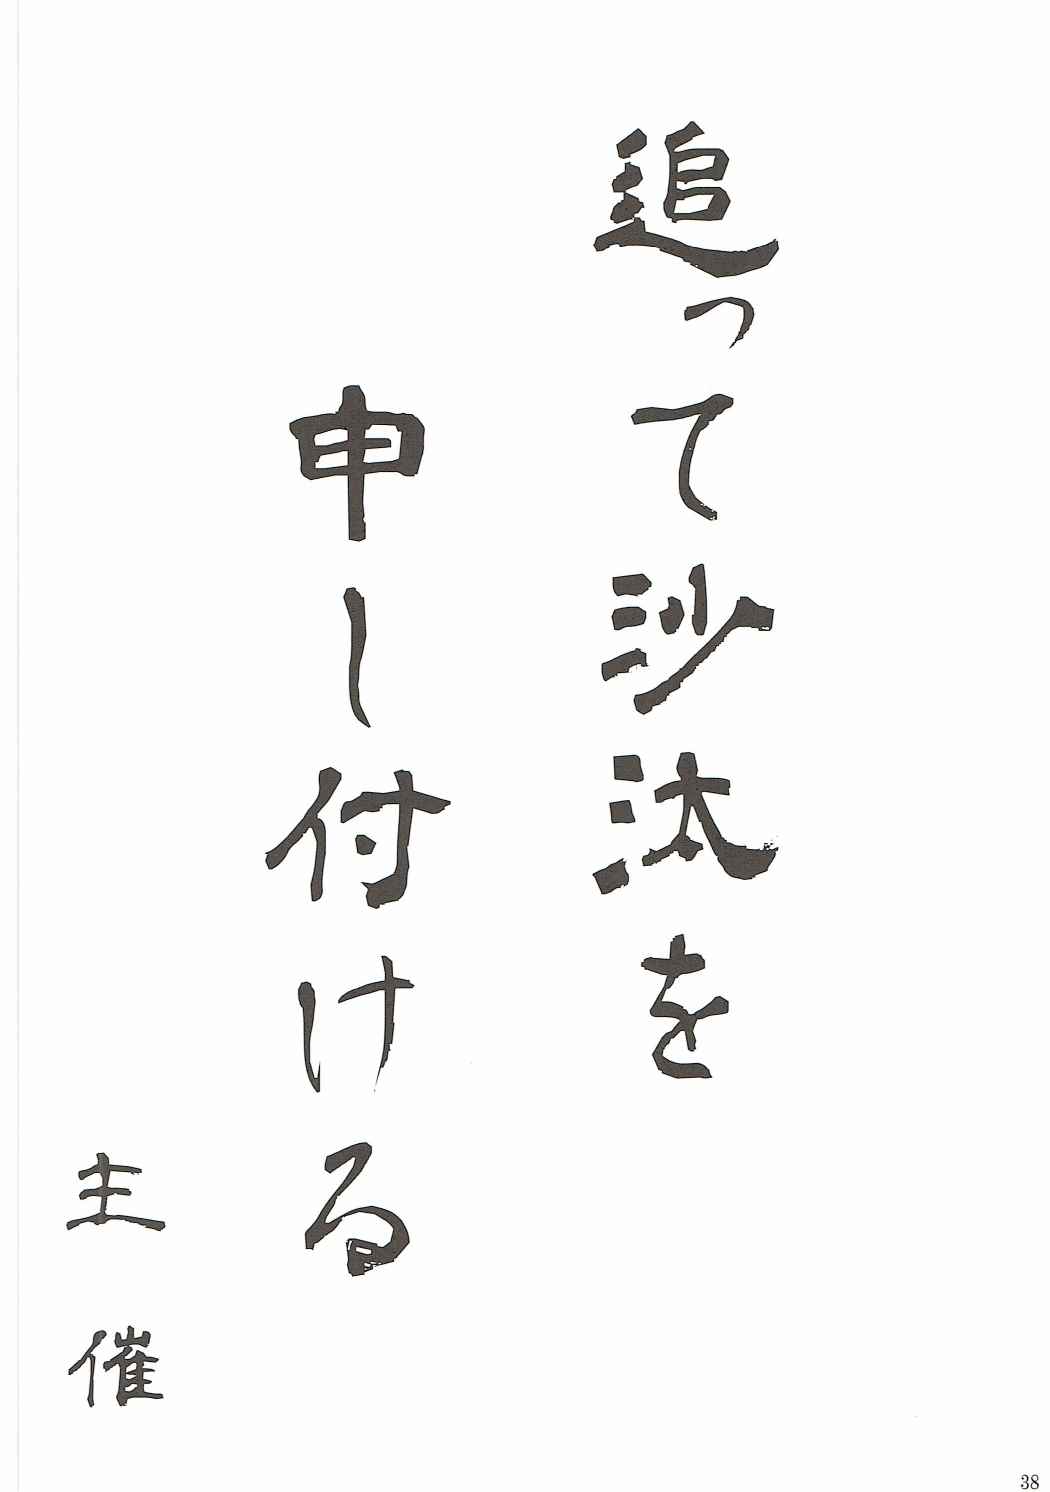 追って沙汰を
申し付ける
主催
38